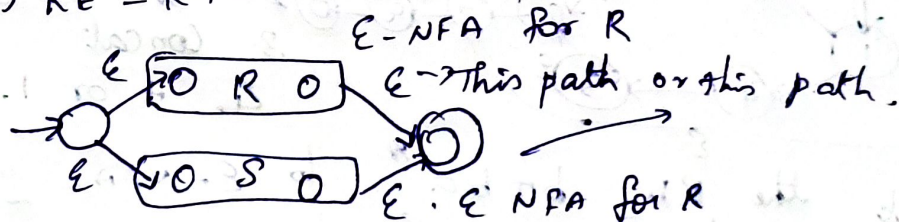 ε-NFA for R
ε R ε→This path or this path.
ε. S ε. ε NFA for R